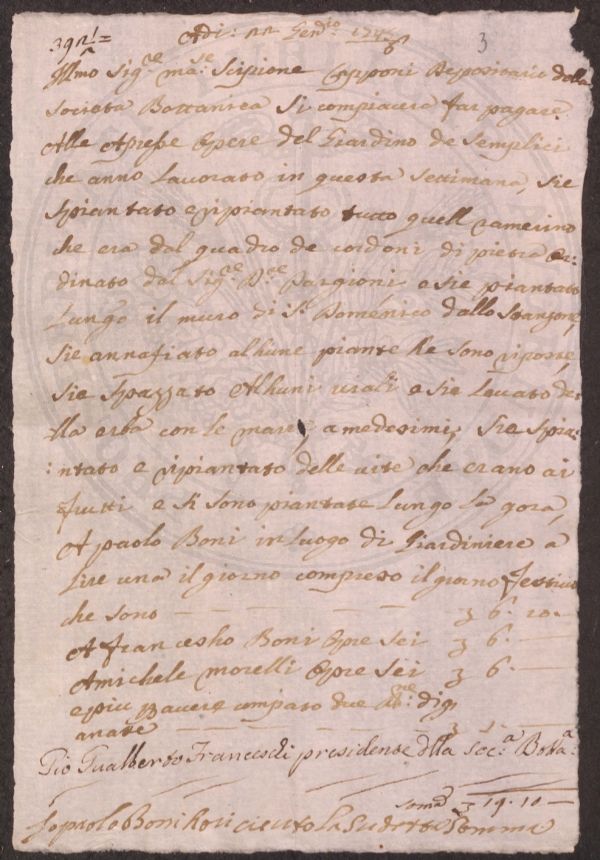 3
Adi: 22 Gen:io 174
Illmo Sig:re Ma:se Scipione Capponi Depositario della
Societa Bottanica si compiacera far pagare
Alle Apresse Opere del Giardino de Semplici
che anno Lavorato in questa Settimana, sie
spiantato e ripiantato tutto quell ramerino
che era dal quadro de cordoni di pietra or:
dinato dal Sig:re D:re Targioni e sie piantato
Lungo il muro di S: Domenico dallo Stanzone,
sie annafiato alhune piante Re sono riposte,
sie spazzato Alhuni viali e sie Levato de
lla erba con le mare, a medesimi, sie spia:
:ntato e ripiantato delle vite che erano ai
frutti e si sono piantate Lungo La gora,
A paolo Boni in Luogo di Giardiniere a
Lire una il giorno compreso il giorno festivo
che sono — — — — — 3 6. 10.—
A francesho Boni Opre sei 3 6.—
Amichele morelli Opre sei 3 6.—
e piu pavere comparo due
anate — — — — 3 1.—
Pio Gualberto Franceschi presidente dlla Soc:a Botta:a
Som:a 3 19.10—
Io paolo Boni Ho ricieuto La Sudetta Somma